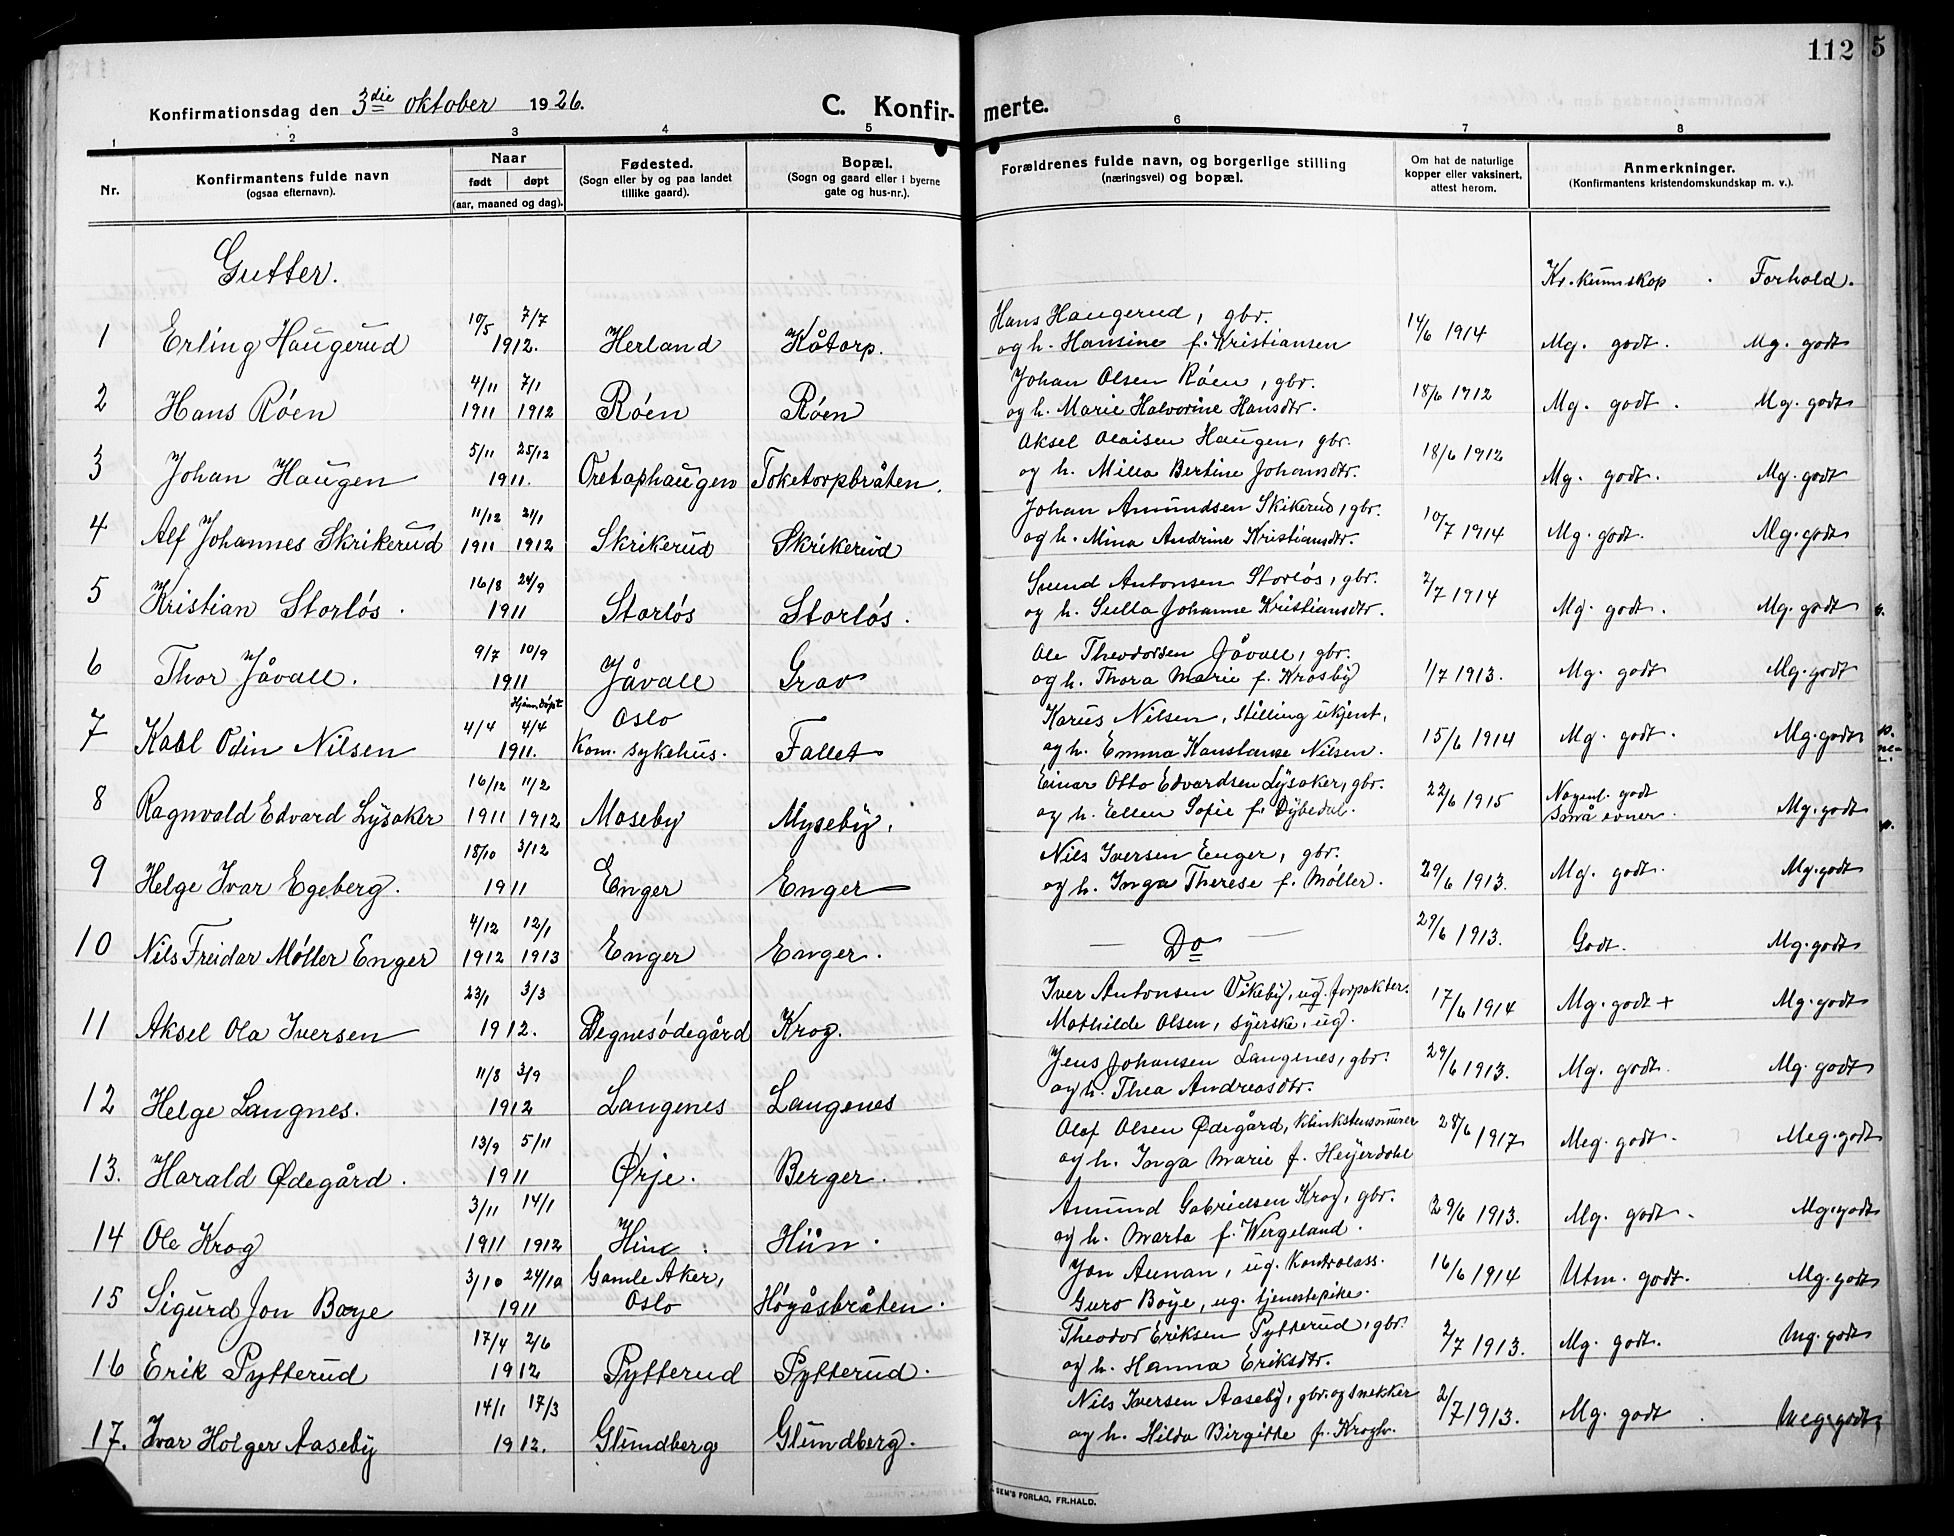 112
5
Konfirmationsdag den 3die oktober 1926.
C. Konfir-merte.
1 2 3 4 5 6 7 8
Nr.
Konfirmantens fulde navn
(ogsaa efternavn).
Naar
født døpt
(aar, maaned og dag).
Fødested.
(Sogn eller by og paa landet
tillike gaard).
Bopæl.
(Sogn og gaard eller i byerne
gate og hus-nr.).
Forældrenes fulde navn, og borgerlige stilling
(næringsvei) og bopæl.
Om hat de naturlige
kopper eller vaksinert,
attest herom.
Anmerkninger.
(Konfirmantens kristendomskundskap m. v.).
Gutter.
Kr. kunnskap . Forhold.
10/5 7/7 Hans Haugerud, gbr.
1 Erling Haugerud 1912. Herland Kåtorp. og h. Hansine f. Kristiansen 14/6 1914 Mg. godt. Mg. godt
4/11 7/1 Johan Olsen Röen, gbr.
2 Hans Röen 1911 1912 Röen Röen og h. Marie Halvorine Hansdtr. 18/6 1912 Mg. godt. Mg. godt
5/11 25/12 Aksel Olaisen Haugen, gbr.
3 Johan Haugen 1911. Oretaphaugen Toketorpbråten. og h. Milla Bertine Johansdtr. 18/6 1912 Mg. godt. Mg. godt
11/12 21/1 Johan Amundsen Skikerud, gbr.
4 Alf Johannes Skrikerud 1911 1912 Skrikerud Skrikerud og h. Mina Andrine Kristiansdtr. 10/7 1914 Mg. godt. Mg. godt
16/8 24/9 Svend Antonsen Storlös, gbr.
5 Kristian Storlös. 1911 Storlös Storlös. og h. Sulla Johanne Kristiansdtr. 2/7 1914 Mg. godt. Mg. godt
9/7 10/9 Ole Theodorsen Jåvall, gbr.
6 Thor Jåvall. 1911 Jåvall Grav og h. Thora Marie f. Krosby 1/7 1913. Mg. godt Mg. godt
Hjemdöpt
4/4 4/4 Oslo Karus Nilsen, Stilling ukjent,
7 Kabl Odin Nilsen 1911. Kom. sykehus. Fallet og h. Emma Konstanse Nilsen. 15/6 1914 Mg. godt. Mg. godt
16/12 11/2 Einar Otto Edvardsen Lysaker, gbr.
8 Ragnvald Edvard Lysaker 1911 1912 Moseby Myseby. og h. Ellen Sofie f. Dybedal. 22/6 1915 Nogenl. godt Små evner. Mg. godt
18/10 3/12 Nils Iversen Enger, gbr.
9 Helge Ivar Egeberg. 1911 Enger Enger og h. Inga Therese f. Møller. 29/6 1913. Mg. godt. Mg. godt
4/12 12/1
10 Nils Freidar Møller Enger 1912 1913 Enger Enger. — Do — 29/6 1913. Godt. Mg. godt
23/1 3/3 Iver Antonsen Vikeby, ug. forpakter.
11 Aksel Ola Iversen 1912. Degnesödegård Krog. Mathilde Olsen, syerske, ug. 17/6 1914 Mg. godt + Mg. godt
11/8 3/9 Jens Johansen Langenes, gbr.
12 Helge Langnes. 1912 Langenes Langenes og h. Thea Andreasdtr. 29/6 1913. Mg. godt. Mg. godt
13/9 5/11 Olaf Olsen Ødegård,
13. Harald Ødegård. 1911 Ørje. Berger. og h. Inga Marie f. Heyerdahl 28/6 1917 Meg. godt. Meg. godt
3/11 14/1 Amund Gabrielsen Krog, gbr.
14 Ole Krog 1911 1912 Hün. og h. Marta f. Wergeland. 29/6 1913. Mg. godt. Mg. godt
3/10 24/10 Gamle Aker, Jon Aunan, ug. Kontrolass.
15 Sigurd Jon Boye 1911 Oslo Høgåsbråten. Guro Boye, ug. tjenestepike. 16/6 1914 Utm. godt. Mg. godt
17/4 2/6 Theodor Eriksen Pytterud, gbr.
16 Erik Pytterud 1912 Pytterud Pytterud. og h. Hanna Eriksdtr. 2/7 1913. Mg. godt. Mg. godt
14/1 17/3 Nils Iversen Aaseby, gbr. og snekker
17. Ivar Holger Aaseby 1912. Glundberg Glundberg. og h. Hilda Birgitte f. Krogh. 2/7 1913. Mg. godt. Meg. godt
SEM'S FORLAG, FR.HALD.